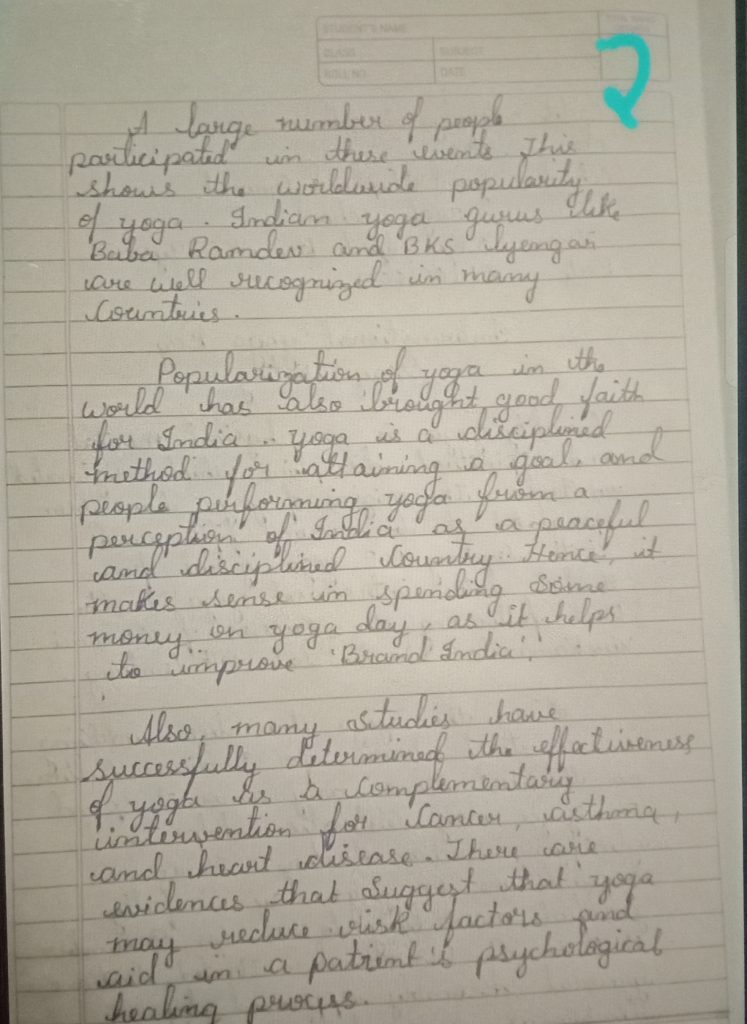 STUDENT'S NAME
CLASS SUBJECT
ROLL NO. DATE
2
A large number of people
participated in these events This
shows the worldwide popularity
of yoga. Indian yoga gurus like
Baba Ramdev and BKS Iyengar
are well recognized in many
Countries.
Popularization of yoga in the
world has also brought good faith
for India. yoga is a disciplined
method for attaining a goal, and
people performing yoga from a
perception of India as a peaceful
and disciplined Country. Hence, it
makes sense in spending some
money on yoga day, as it helps
to improve 'Brand India'.
Also, many studies have
successfully determined the effectiveness
of yoga as a Complementary
intervention for Cancer, asthma,
and heart disease. There are
evidences that Suggest that yoga
may reduce risk factors and
aid in a patient's psychological
healing process.